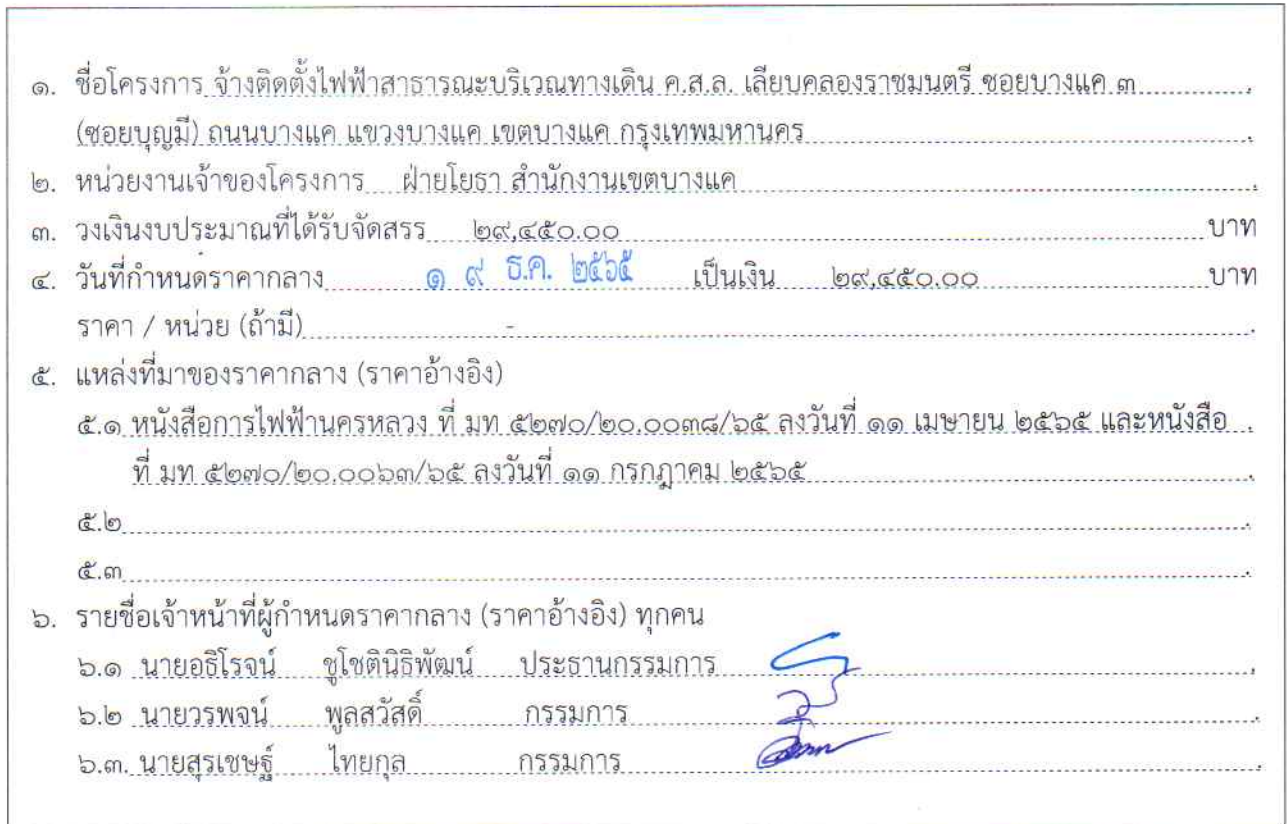 ๑. ชื่อโครงการ จ้างติดตั้งไฟฟ้าสาธารณะบริเวณทางเดิน ค.ส.ล. เลียบคลองราชมนตรี ซอยบางแค ๓
(ซอยบุญมี) ถนนบางแค แขวงบางแค เขตบางแค กรุงเทพมหานคร
๒. หน่วยงานเจ้าของโครงการ ฝ่ายโยธา สำนักงานเขตบางแค
๓. วงเงินงบประมาณที่ได้รับจัดสรร ๒๙,๔๕๐.๐๐ บาท
๔. วันที่กำหนดราคากลาง ๑ ๙ ธ.ค. ๒๕๖๕ เป็นเงิน ๒๙,๔๕๐.๐๐ บาท
ราคา / หน่วย (ถ้ามี) -
๕. แหล่งที่มาของราคากลาง (ราคาอ้างอิง)
๕.๑ หนังสือการไฟฟ้านครหลวง ที่ มท ๕๒๗๐/๒๐.๐๐๓๘/๖๕ ลงวันที่ ๑๑ เมษายน ๒๕๖๕ และหนังสือ
ที่ มท ๕๒๗๐/๒๐.๐๐๖๓/๖๕ ลงวันที่ ๑๑ กรกฎาคม ๒๕๖๕
๕.๒
๕.๓
๖. รายชื่อเจ้าหน้าที่ผู้กำหนดราคากลาง (ราคาอ้างอิง) ทุกคน
๖.๑ นายอธิโรจน์ ชูโชตินิธิพัฒน์ ประธานกรรมการ
๖.๒ นายวรพจน์ พูลสวัสดิ์ กรรมการ
๖.๓. นายสุรเชษฐ์ ไทยกุล กรรมการ